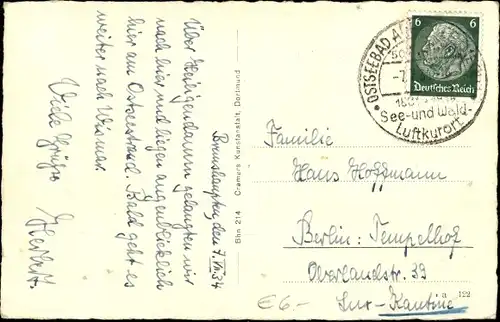 Brunshaupten, den 7. VIII 34
Über Heiligendamm gelangten wir
nach hier und liegen augenblicklich
hier am Ostseestrand. Bald geht es
weiter nach Wismar.
Viele Grüße
Herbert.
Bhn 214 Cramers Kunstanstalt, Dortmund
OSTSEEBAD
See- und Wald-
Luftkurort
6 6
Deutsches Reich
Familie
Hans Hoffmann
Berlin-Tempelhof
Oberlandstr. 33
Kantine
a 122
€6-